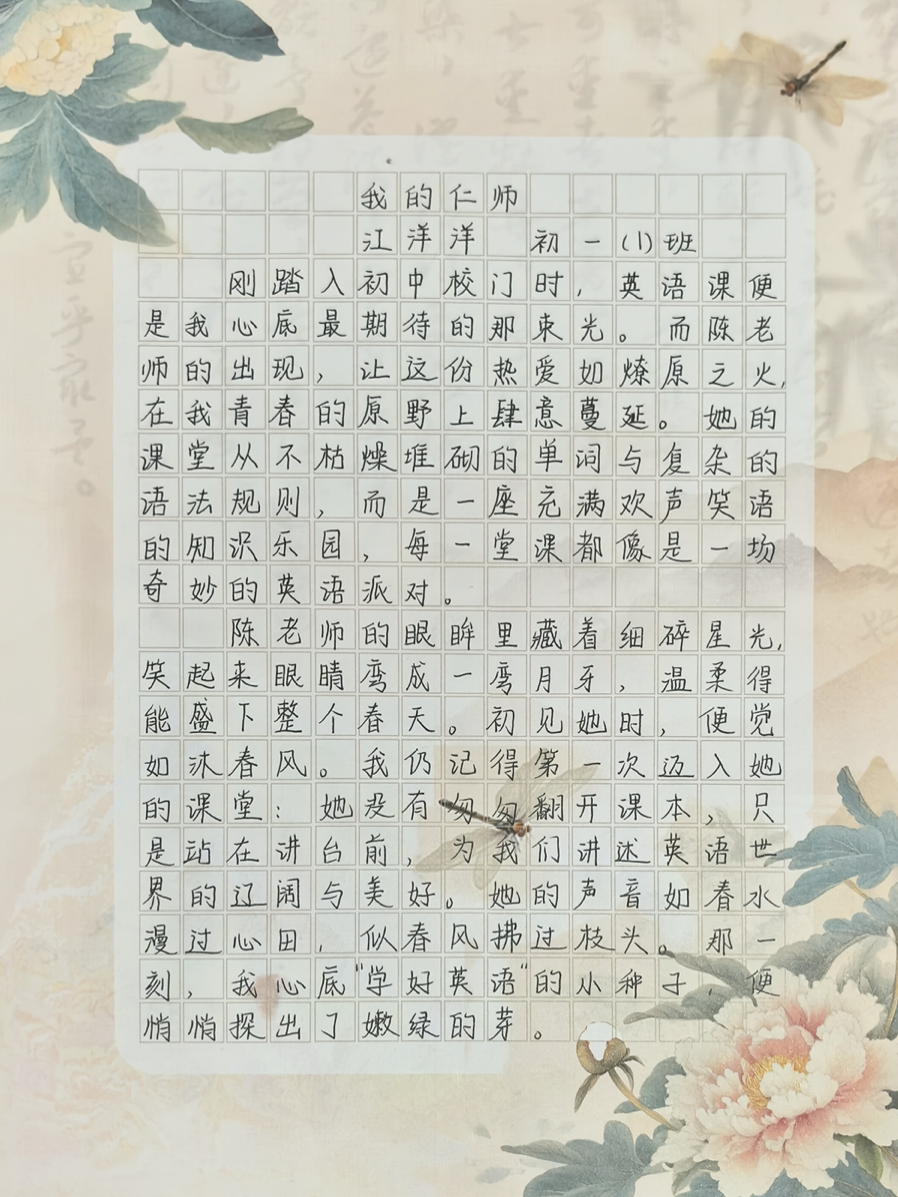 我的仁师
江洋洋 初一(1)班
刚踏入初中校门时，英语课便
是我心底最期待的那束光。而陈老
师的出现，让这份热爱如燎原之火，
在我青春的原野上肆意蔓延。她的
课堂从不枯燥堆砌的单词与复杂的
语法规则，而是一座充满欢声笑语
的知识乐园，每一堂课都像是一场
奇妙的英语派对。
陈老师的眼眸里藏着细碎星光，
笑起来眼睛弯成一弯月牙，温柔得
能盛下整个春天。初见她时，便觉
如沐春风。我仍记得第一次迈入她
的课堂：她没有匆匆翻开课本，只
是站在讲台前，为我们讲述英语世
界的辽阔与美好。她的声音如春水
漫过心田，似春风拂过枝头。那一
刻，我心底“学好英语”的小种子，便
悄悄探出了嫩绿的芽。
宜乎众矣。